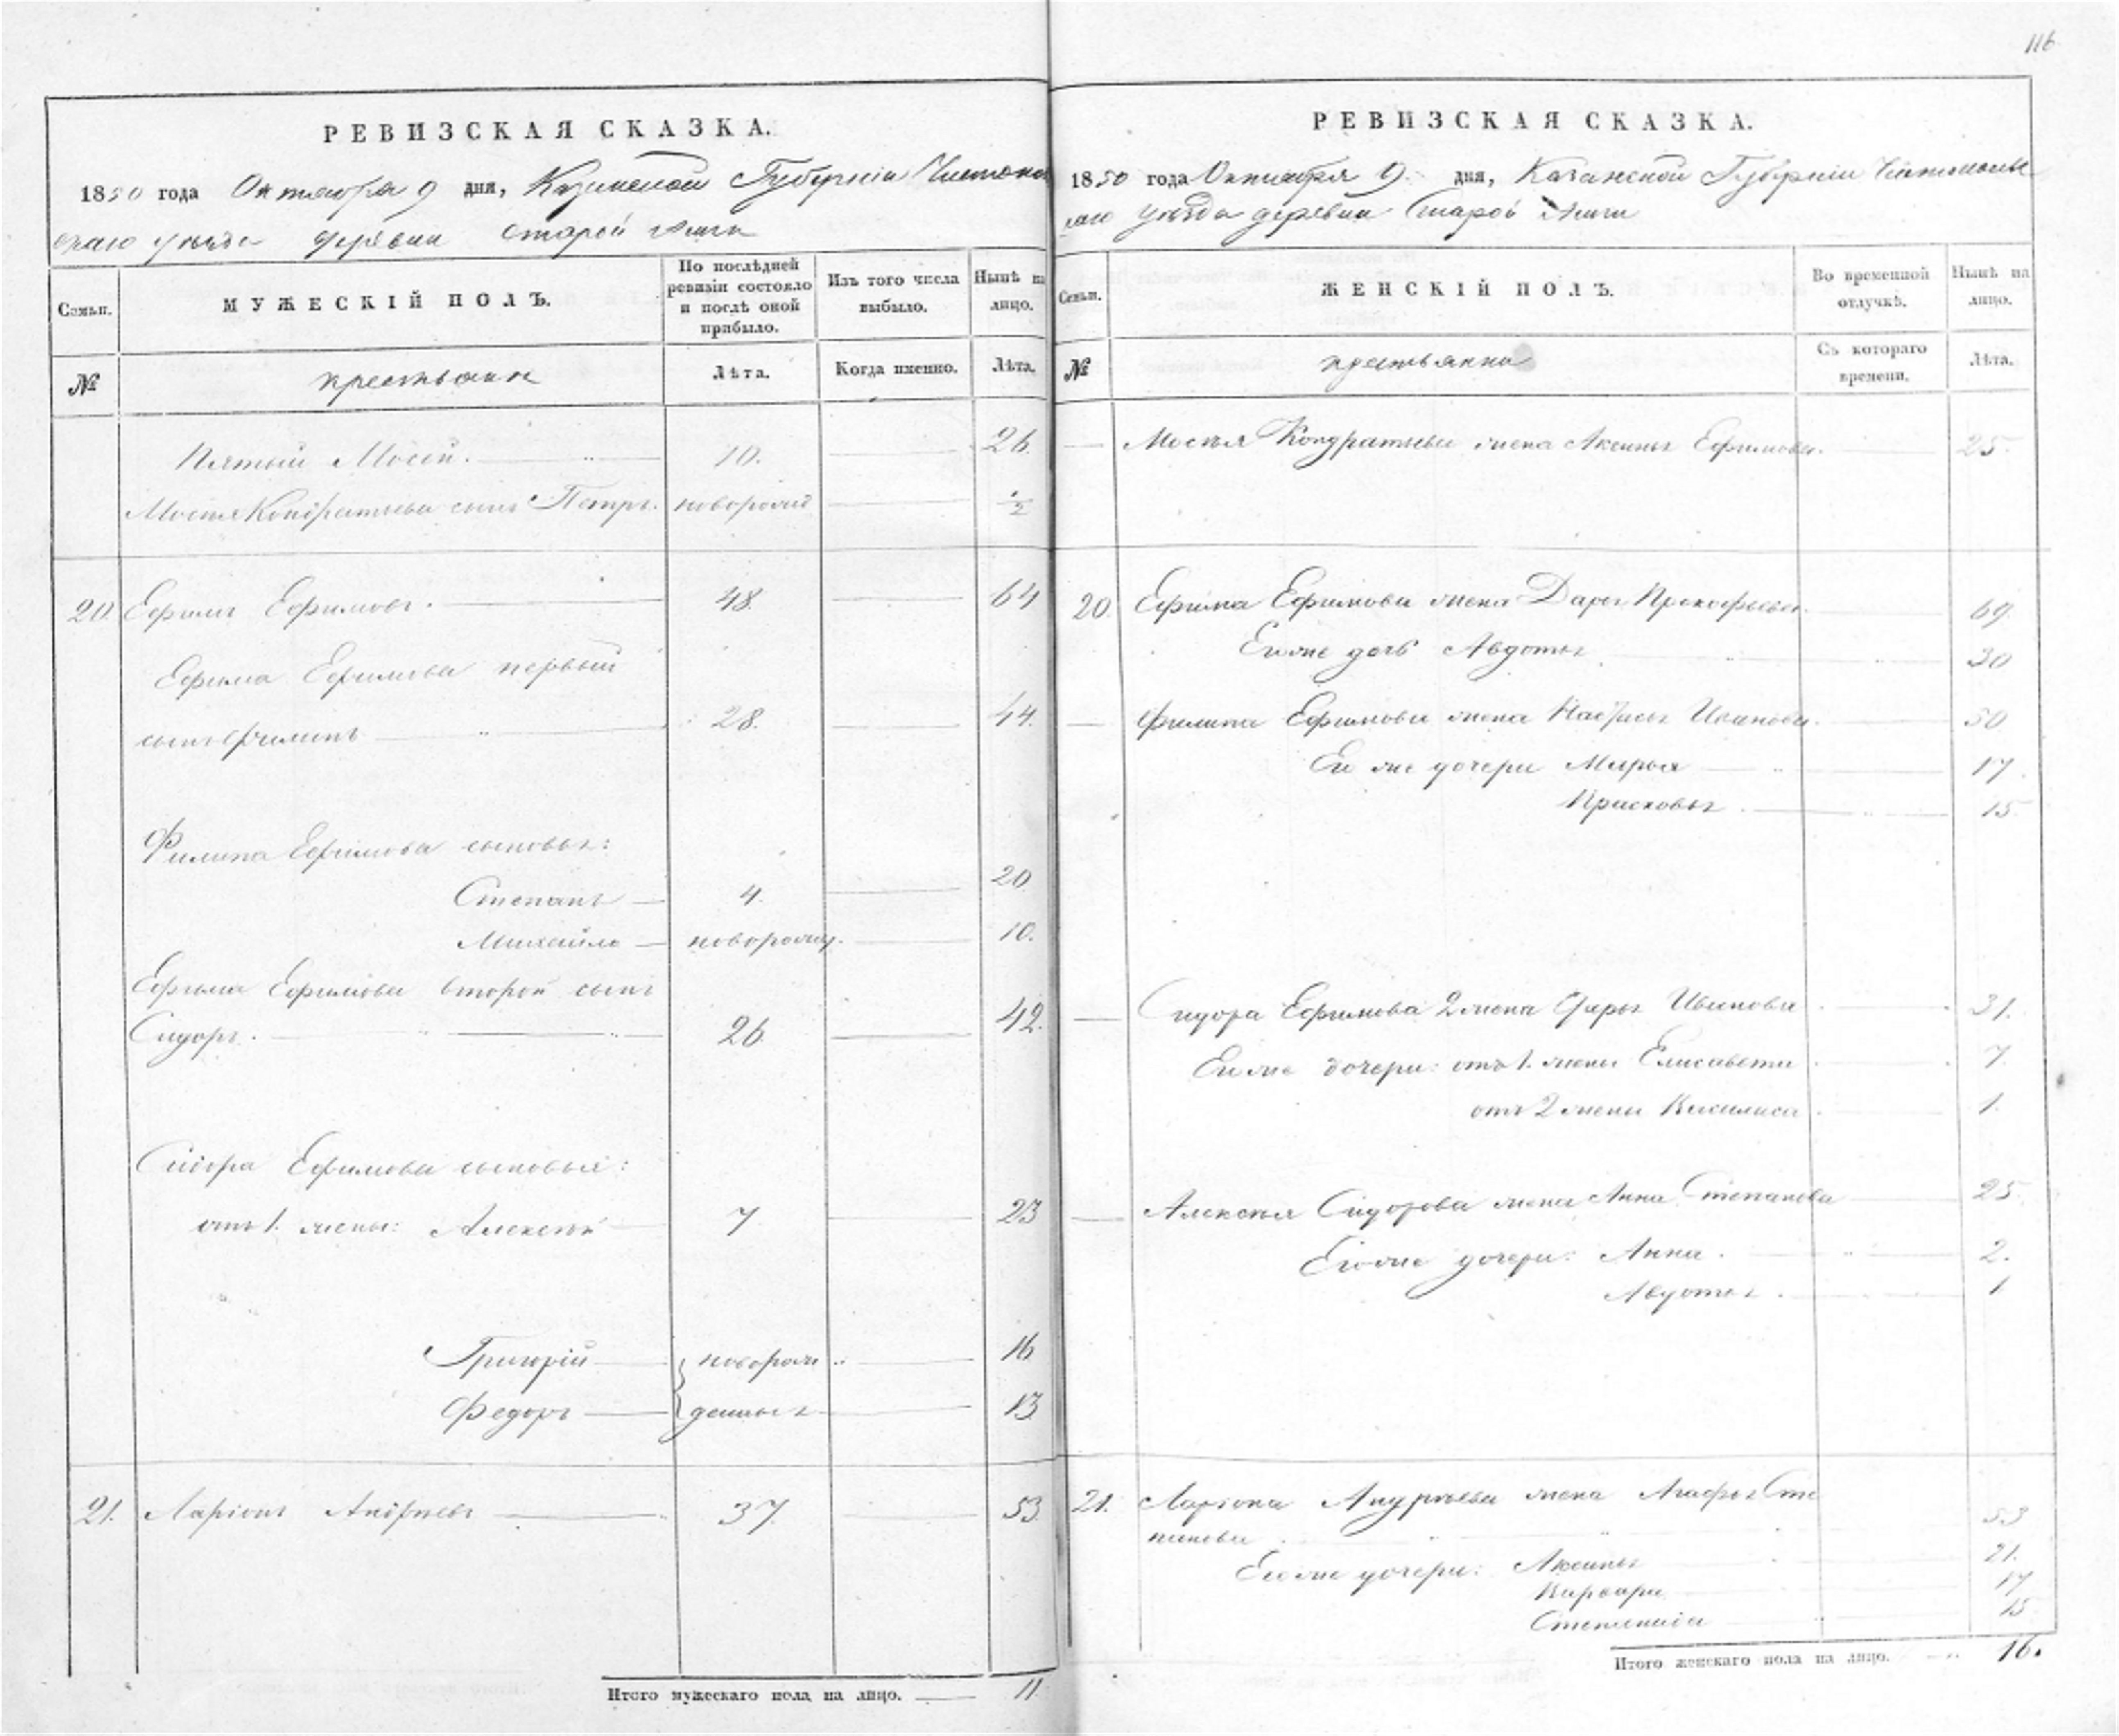 116
РЕВИЗСКАЯ СКАЗКА.
1850 года Октября 9 дня, Казанской Губерніи Чистополь
скаго уѣзда деревни Старой
Семьи.
МУЖЕСКІЙ ПОЛЪ.
По послѣдней ревизіи состояло и послѣ оной прибыло.
Изъ того числа выбыло.
Нынѣ на лицо.
№
крестьяне
Лѣта.
Когда именно.
Лѣта.
Пятый Мосей. 10. 26.
Мосея Кондратьева сынъ Петръ. новорожд 1/2
20 Ефимъ Ефимовъ. 48. 64
Ефима Ефимова первый
сынъ Филипъ 28. 44.
Филипа Ефимова сыновья:
Степанъ 4. 20.
Михайло новорожд. 10.
Ефима Ефимова второй сынъ
Сидоръ. 26 42.
Сидора Ефимова сыновья:
отъ 1. жены: Алексѣй 7 23
Григорій новорож 16
Федоръ денные 13
21. Ларіонъ Андреевъ 37. 53.
Итого мужескаго пола на лицо. 11.
РЕВИЗСКАЯ СКАЗКА.
1850 года Октября 9. дня, Казанской Губерніи Чистополь
скаго уѣзда деревни Старой
Семьи.
ЖЕНСКІЙ ПОЛЪ.
Во временной отлучкѣ.
Нынѣ на лицо.
№
крестьянки
Съ котораго времени.
Лѣта.
Мосея Кондратьева жена Аксинья Ефимова. 25.
20. Ефима Ефимова жена Дарья Прокофьева. 69.
Его же дочь Авдотья 30
Филипа Ефимова жена Настасья Иванова. 50
Его же дочери Марья 17.
Прасковья. 15.
Сидора Ефимова 2 жена Дарья Иванова 31.
Его же дочери: отъ 1. жены Елисавета 7.
отъ 2 жены Василиса 1.
Алексея Сидорова жена Анна Степанова 25.
Его же дочери: Анна. 2.
Авдотья. 1
21. Ларіона Андреева жена Агафья Сте
панова 53
Его же дочери: Аксинья 21.
Варвара 17
Степанида 15
Итого женскаго пола на лицо. 16.